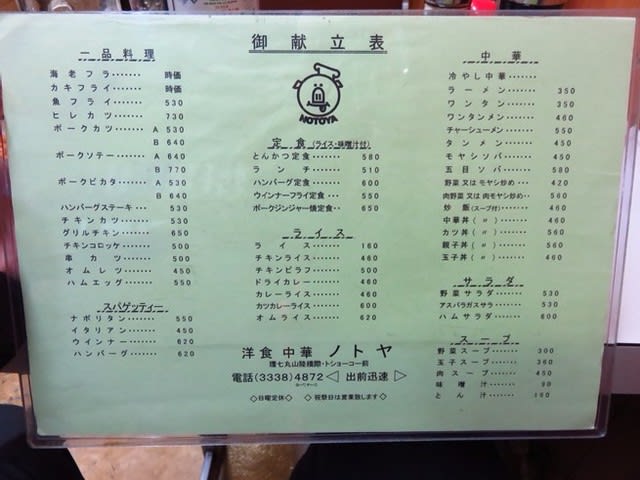 御献立表
一品料理
海老フライ・・・・・・ 時価
カキフライ・・・・・・ 時価
魚フライ・・・・・・ 530
ヒレカツ・・・・・・ 730
ポークカツ・・・ A 530
B 640
ポークソテー・・・ A 640
B 770
ポークピカタ・・・ A 530
B 640
ハンバーグステーキ・・・ 530
チキンカツ・・・・・・ 530
グリルチキン・・・・・・ 650
チキンコロッケ・・・・・・ 500
串カツ・・・・・・ 500
オムレツ・・・・・・ 450
ハムエッグ・・・・・・ 550
スパゲッティー
ナポリタン・・・・・・ 550
イタリアン・・・・・・ 450
ウインナー・・・・・・ 620
ハンバーグ・・・・・・ 620
NOTOYA
定食(ライス・味噌汁付)
とんかつ定食・・・・・・ 580
ランチ・・・・・・ 510
ハンバーグ定食・・・・・・ 600
ウインナーフライ定食・・・ 550
ポークジンジャー焼定食・・ 650
ライス
ライス・・・・・・ 160
チキンライス・・・・・・ 460
チキンピラフ・・・・・・ 500
ドライカレー・・・・・・ 460
カレーライス・・・・・・ 460
カツカレーライス・・・・・・ 600
オムライス・・・・・・ 620
洋食 中華 ノトヤ
電話(3338)4872◁ 出前迅速 ▷
◇日曜定休◇ ◇祝祭日は営業致します◇
中華
冷やし中華・・・・・・
ラーメン・・・・・・ 350
ワンタン・・・・・・ 350
ワンタンメン・・・・・・ 460
チャーシューメン・・・・・・ 550
タンメン・・・・・・ 450
モヤシソバ・・・・・・ 450
五目ソバ・・・・・・ 560
野菜 又は モヤシ炒め・・・ 420
肉野菜 又は 肉モヤシ炒め・・ 560
炒飯(スープ付)・・・ 460
中華丼(〃)・・・・・・ 460
カツ丼(〃)・・・・・・ 560
親子丼(〃)・・・・・・ 460
玉子丼(〃)・・・・・・ 460
サラダ
野菜サラダ・・・・・・ 530
アスパラガスサラ・・・・・・ 530
ハムサラダ・・・・・・ 600
スープ
野菜スープ・・・・・・ 300
玉子スープ・・・・・・ 360
肉スープ・・・・・・ 450
味噌汁・・・・・・ 90
とん汁・・・・・・